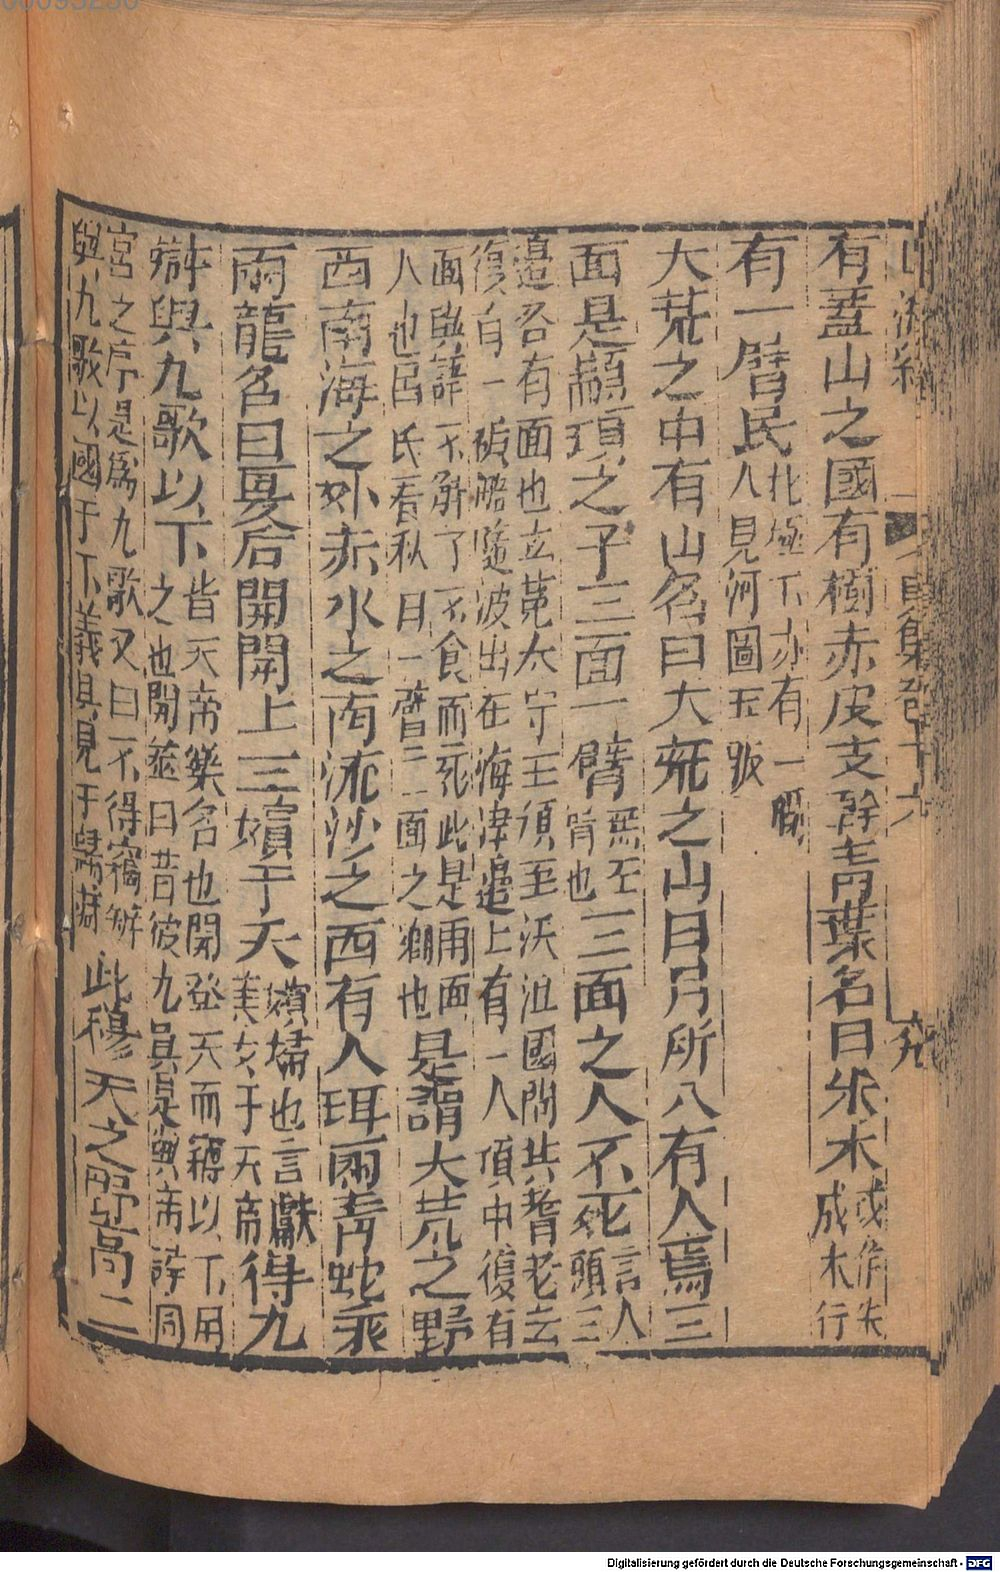 山海經 集卷十六
有蓋山之國有樹赤皮支幹青葉名曰朱木或作朱
成木行
有一臂民北極下亦有一脚
人見河圖玉版
大荒之中有山名曰大荒之山日月所入有人焉三
面是顓頊之子三面一臂無左
臂也三面之人不死言人
頭三
邊各有面也玄菟太守王頎至沃沮國問其耆老云
復自一破船隨波出在海津邉上有一人頂中復有
面與語不解了不食而死此是兩面
人也呂氏春秋曰一臂三面之鄉也是謂大荒之野
西南海之外赤水之南流沙之西有人珥兩青蛇乘
兩龍名曰夏后開開上三嬪于天嬪婦也言獻
美女于天帝得九
辯與九歌以下皆天帝樂名也開登天而竊以下用
之也開筮曰昔彼九冥是與帝辯同
宮之序是爲九歌又曰不得竊辯
與九歌以國于下義具見于歸藏此穆天之野高二
Digitalisierung gefördert durch die Deutsche Forschungsgemeinschaft - DFG